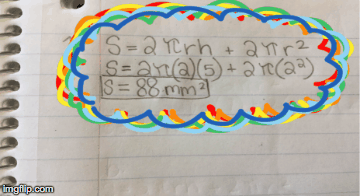 S = 2πrh + 2πr²
S = 2π(2)(5) + 2π(2²)
S = 88 mm²
imgflip.com